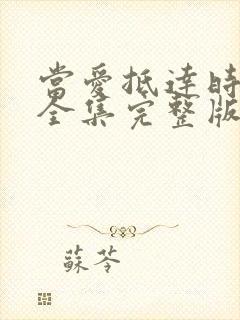 當愛抵達時
全集完整版
蘇苓